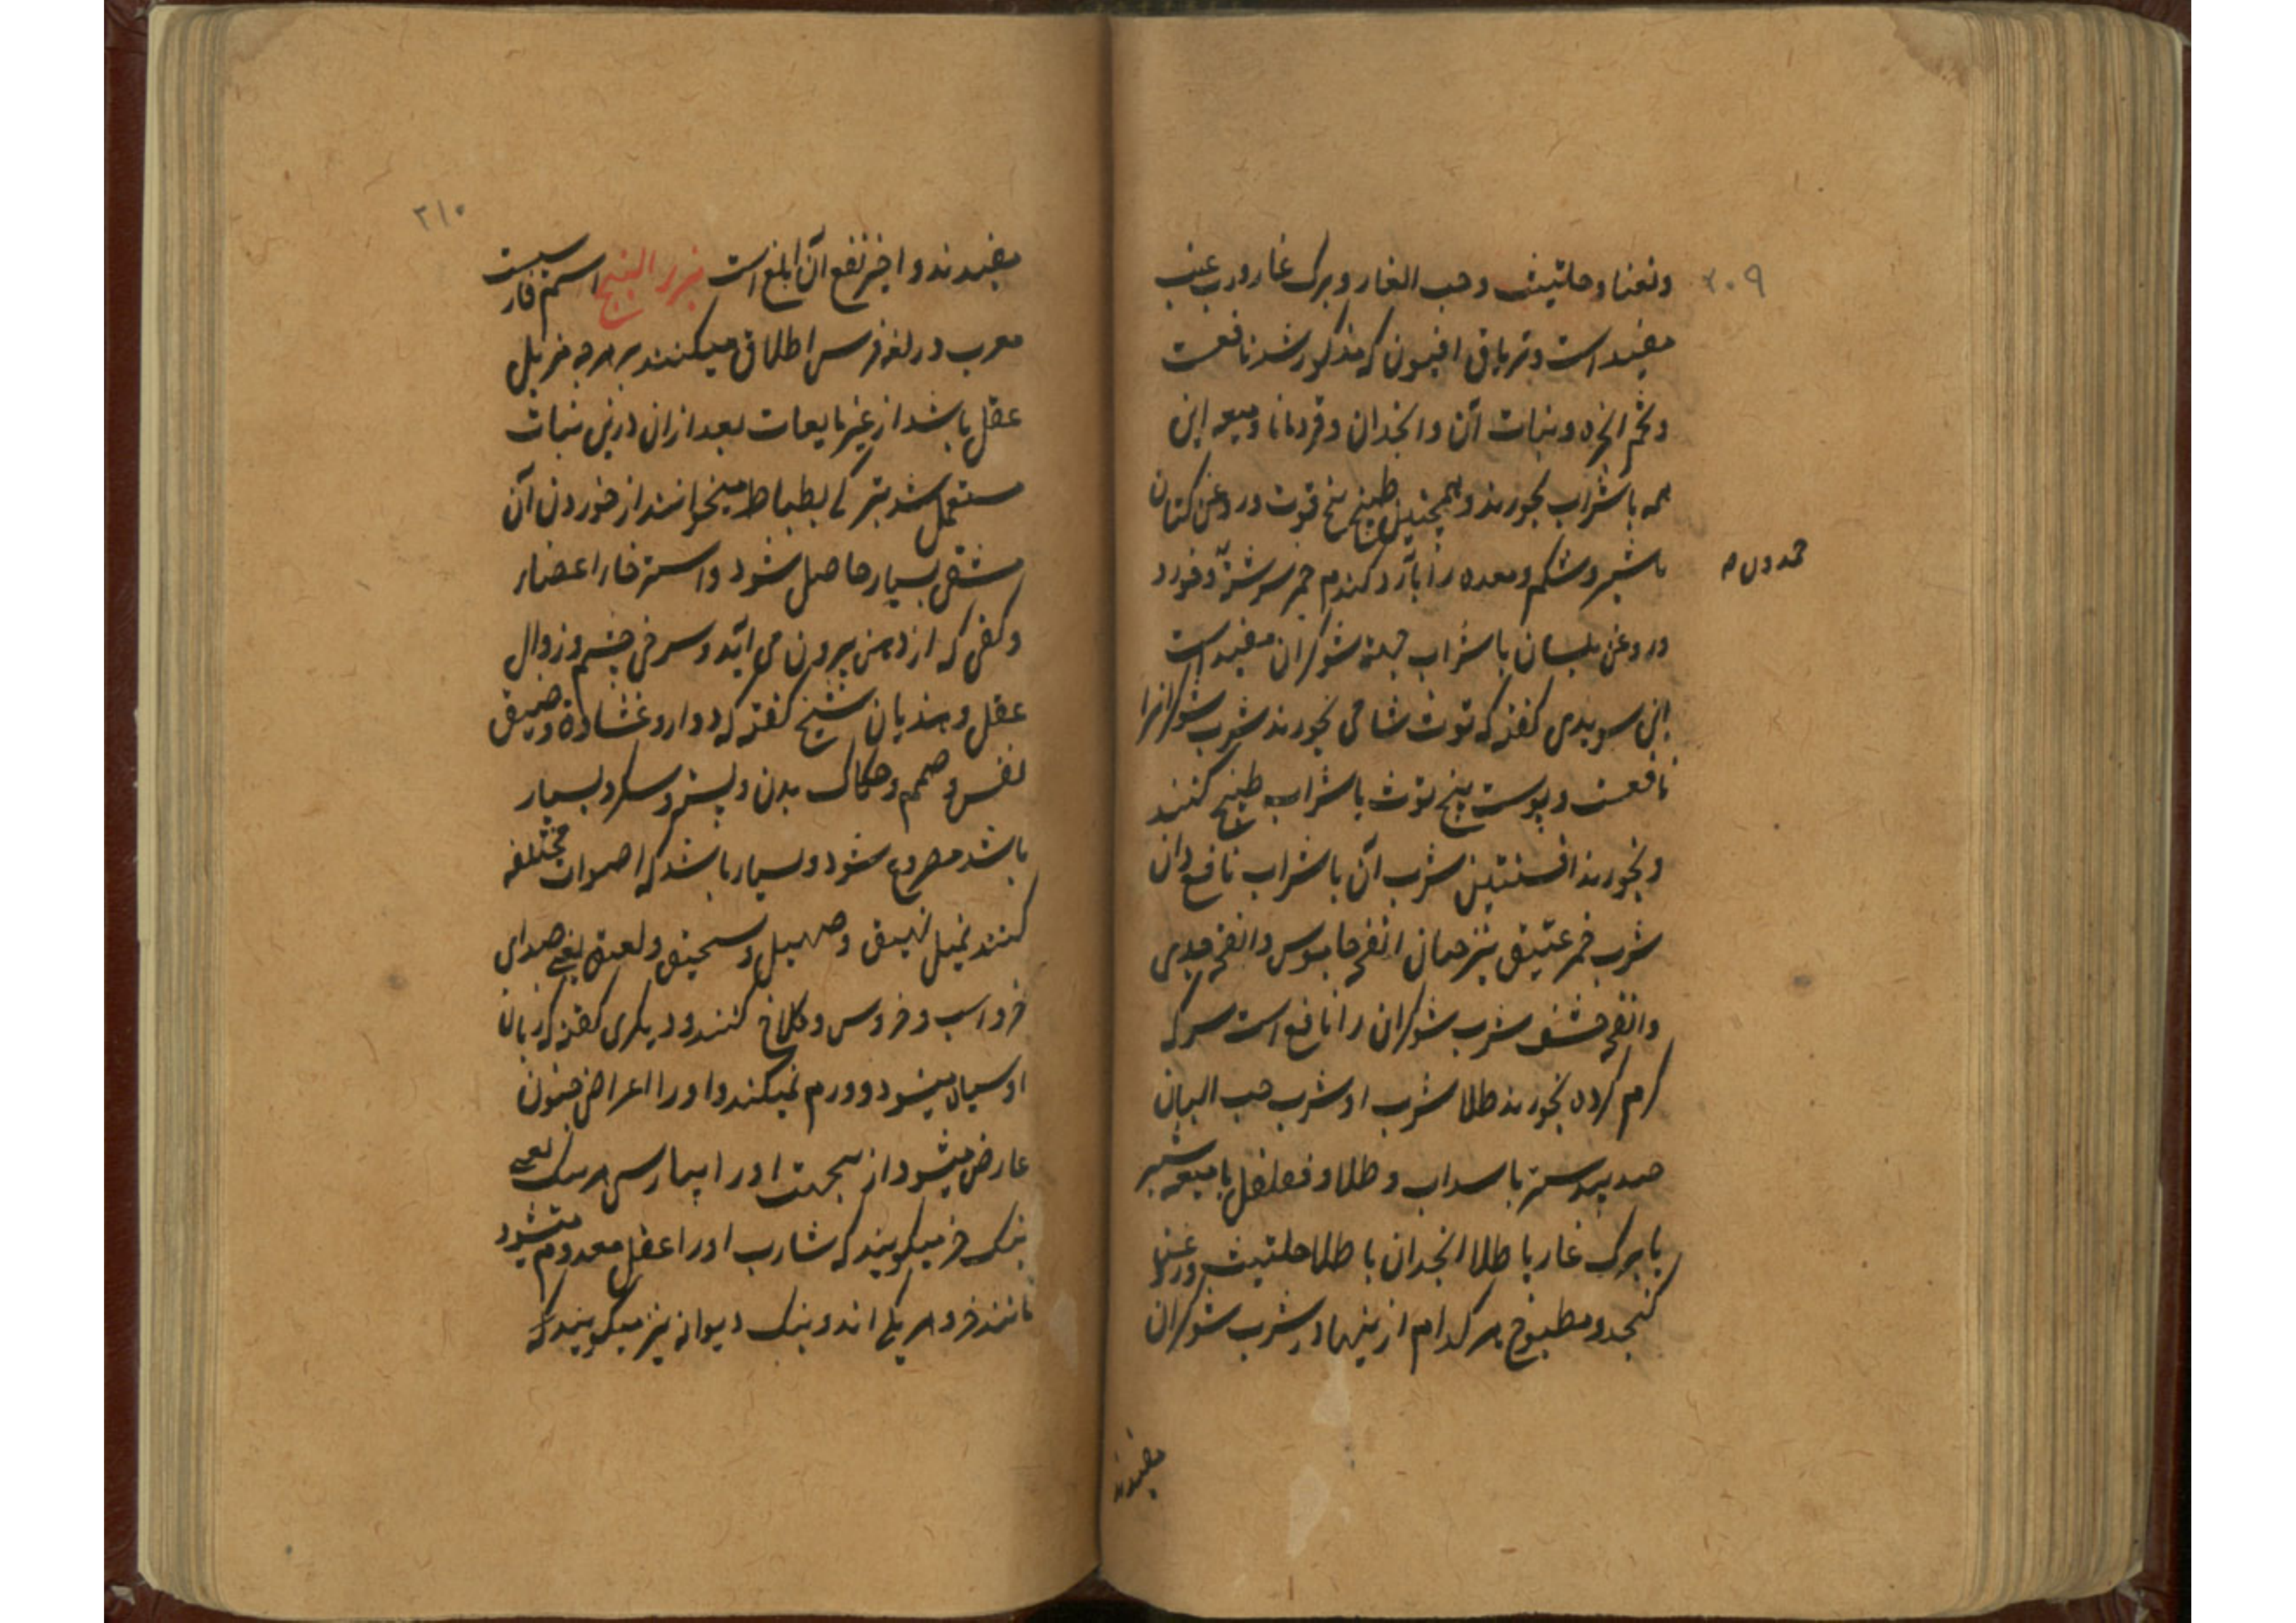 ۲۰۹
ونعنا و حلتیت و حب الغار و برک غار و رب عنب
مفید است و تریاق افیون که مذکور شد نافعست
و تخم انجره و نبات آن و انجدان و قردمانا و میعه این
همه با شراب بخورند و همچنین طبیخ بیخ توت و روغن کتان
با شیر و شکم و معده را بآرد کندم خمر سرشته و خورد
حمدون
و روغن بلسان با شراب جهة شوکران مفید است
ابن سویدی کفته که توث شامی بخورند شرب شوکرانرا
نافعست و پوست بیخ توث با شراب طبیخ کنند
و بخورند افسنتین شرب آن با شراب نافع دان
شرب خمر عتیق نیز همان انفحه جاموس و انفحه جدی
و انفحه خشف شرب شوکران را نافع است سرکه
کرم کرده بخورند طلا شرب او شرب حب البان
جندبیدستر با سداب و طلا و فلفل با میعه شیر
با برک غار با طلا انجدان با طلا حلتیث و روغن
کنجد و مطبوخ هر کدام ازینها در شرب شوکران
مفیدند
۲۱۰
مفیدند و اخیر نفع آن ابلغ است بزر البنج اسم فارسیست
معرب در لغة فرس اطلاق میکنند بر هرچه مزیل
عقل باشد از غیر مایعات بعد ازان درین نبات
مستعمل شد بترکی بطباط میخوانند از خوردن آن
مشقی بسیار حاصل شود و استرخا را اعضار
و کفی که از دهن بیرون می آید و سرخی چشم و زوال
عقل و هذیان شیخ کفته که دوار و غشاوة و ضیق
نفس و صمم و حکاک بدن و لیثغ و سکر و بسیار
باشد مصروع شود و بسیار باشد که اصوات مختلفه
کنند نمیل نهیق و صهیل و سحیق و لعق یعنی صدای
خر و اسب و خروس و کلاغ کنند و دیکری کفته که زبان
او سیاه میشود و ورم نمیکند و او را اعراض جنون
عارض میشود ازینجهت او را بپارسی هر بنک یعنی
بنک خر میکویند که شارب او را عقل معدوم میشود
مانند خر و هر یکی اند و بنک دیوانه نیز میکویند که